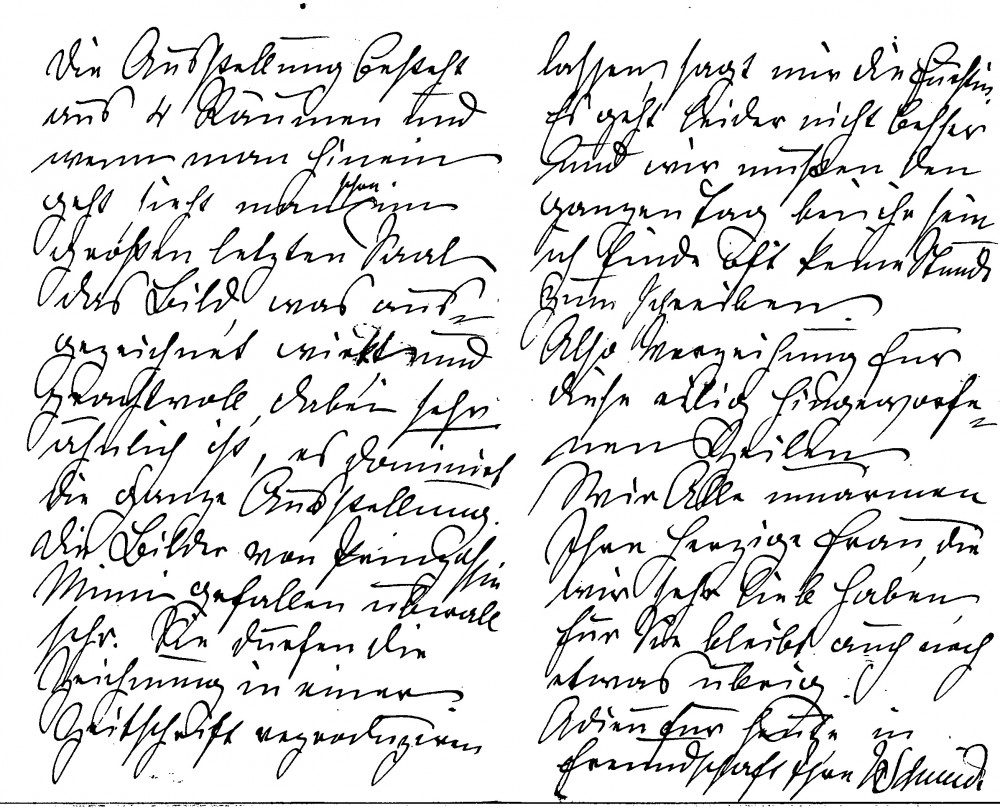 Die Ausstellung besteht
aus 4 Räumen und
wenn man hinein
geht sieht man schon im
großen letzten Saal
das Bild, was aus=
gezeichnet wirkt und
prachtvoll, dabei sehr
ähnlich ist, es dominirt
die ganze Ausstellung.
Die Bilder von Prinzessin
Mimi gefallen überall
sehr. Sie dürfen die
Zeichnung in einer
Zeitschrift reproduziren
lassen, sagt mir die Fürstin.
Es geht leider nicht besser
und wir müßen den
ganzen Tag bei ihr sein
ich finde oft keine Stunde
zum schreiben.
Also Verzeihung für
diese eilig hingeworfe=
nen Zeilen
Wir Alle umarmen
Ihre herzige Frau, die
wir sehr lieb haben
für Sie bleibt auch noch
etwas übrig.
Adieu für heute in
Freundschaft Ihre Schmidt